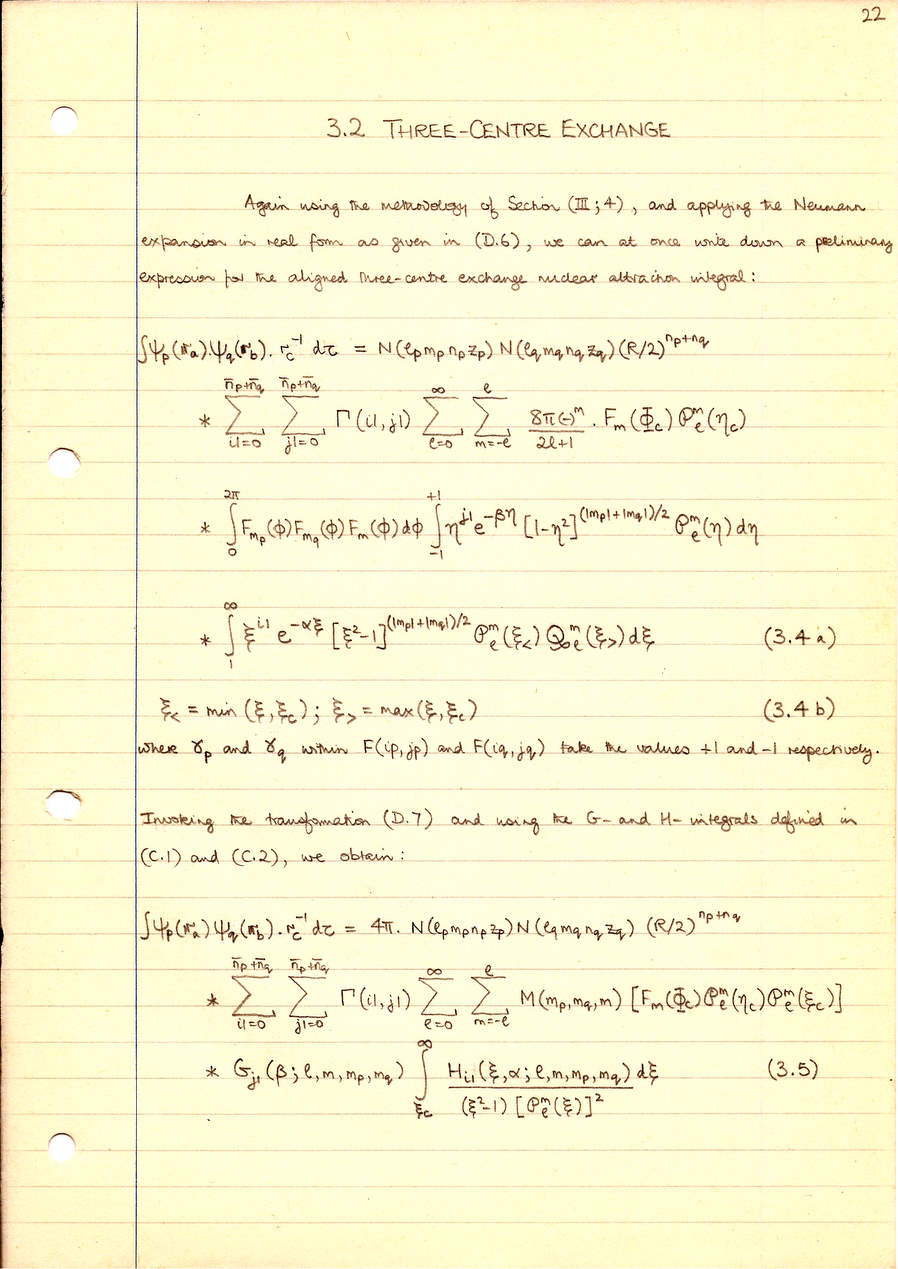 22
3.2 THREE-CENTRE EXCHANGE
Again using the methodology of Section (III; 4), and applying the Neumann
expansion in real form as given in (D.6), we can at once write down a preliminary
expression for the aligned three-centre exchange nuclear attraction integral:
∫ψ_p(r_a).ψ_q(r_b). r_c^{-1} dτ = N(ℓ_p m_p n_p z_p) N(ℓ_q m_q n_q z_q) (R/2)^{n_p+n_q}
* Σ_{i1=0}^{n̄_p+n̄_q} Σ_{j1=0}^{n̄_p+n̄_q} Γ(i1,j1) Σ_{ℓ=0}^{∞} Σ_{m=-ℓ}^{ℓ} 8π(-)^m / 2ℓ+1 . F_m(Φ_c) 𝒫_ℓ^m(η_c)
* ∫_0^{2π} F_{m_p}(ϕ) F_{m_q}(ϕ) F_m(ϕ) dϕ ∫_{-1}^{+1} η^{j1} e^{-βη} [1-η²]^{(|m_p|+|m_q|)/2} 𝒫_ℓ^m(η) dη
* ∫_1^∞ ξ^{i1} e^{-αξ} [ξ²-1]^{(|m_p|+|m_q|)/2} 𝒫_ℓ^m(ξ_<) 𝒬_ℓ^m(ξ_>) dξ (3.4 a)
ξ_< = min (ξ,ξ_c) ; ξ_> = max (ξ,ξ_c) (3.4 b)
where γ_p and γ_q within F(ip,jp) and F(iq,jq) take the values +1 and -1 respectively.
Invoking the transfomation (D.7) and using the G- and H- integrals defined in
(C.1) and (C.2), we obtain:
∫ψ_p(r_a) ψ_q(r_b). r_c^{-1} dτ = 4π. N(ℓ_p m_p n_p z_p) N(ℓ_q m_q n_q z_q) (R/2)^{n_p+n_q}
* Σ_{i1=0}^{n̄_p+n̄_q} Σ_{j1=0}^{n̄_p+n̄_q} Γ(i1,j1) Σ_{ℓ=0}^{∞} Σ_{m=-ℓ}^{ℓ} M(m_p,m_q,m) [F_m(Φ_c) 𝒫_ℓ^m(η_c) 𝒫_ℓ^m(ξ_c)]
* G_{j1}(β; ℓ,m,m_p,m_q) ∫_{ξ_c}^∞ H_{i1}(ξ,α; ℓ,m,m_p,m_q) dξ / (ξ²-1) [𝒫_ℓ^m(ξ)]² (3.5)